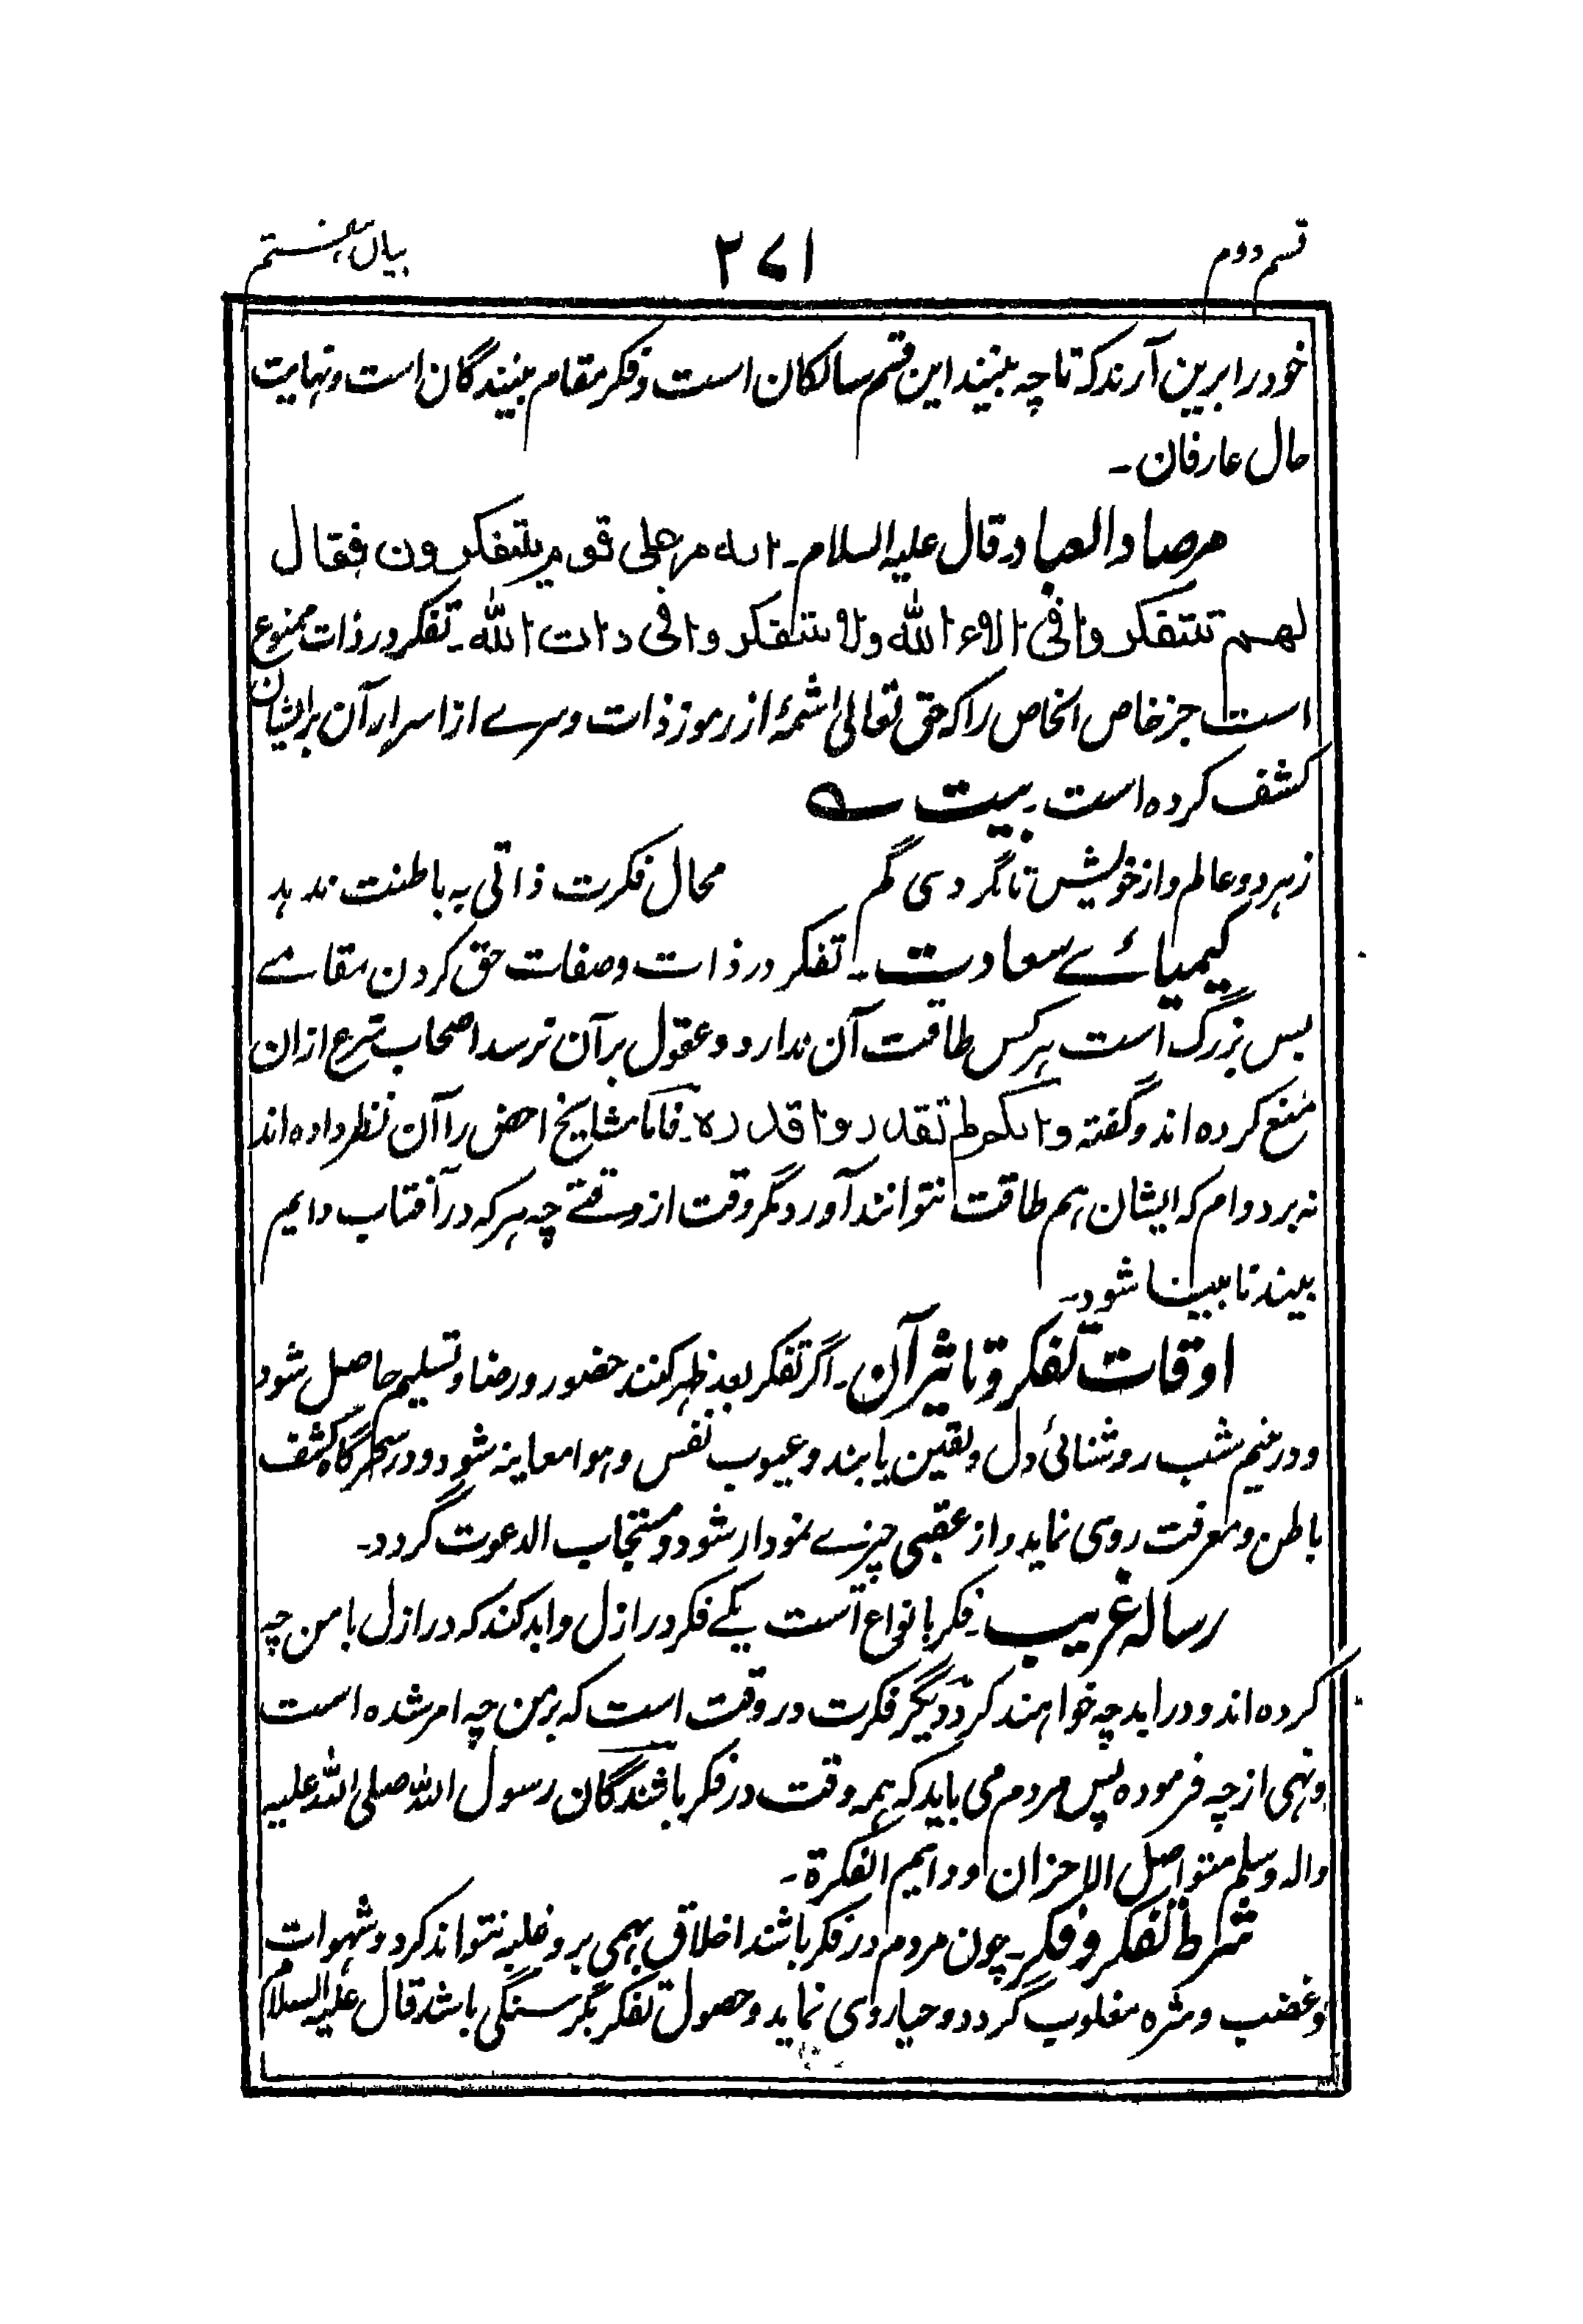 قسم دوم
۳۷۱
بیان هفتم
خود را برین آرند که تا چه بینند این قسم سالکان است و فکر مقام بینندگان است و نهایت
حال عارفان۔
مرصاد العباد قال علیہ السلام۔ انه مر علی قوم یتفکرون فقال
لهم تتفکروا فی الاء الله ولا تتفکروا فی ذات الله۔ تفکر در ذات ممنوع
است جز خاص الخاص را که حق تعالی شمۂ از رموز ذات و سرے از اسرار آن بر ایشان
کشف کرده است۔ بیت
ز هر دو عالم و از خویش تا نگردی گم
محال فکرت ذاتی به باطنت ندهد
کیمیائے سعادت۔ تفکر در ذات و صفات حق کردن مقامے
بس بزرگ است هرکس طاقت آن ندارد و عقول بر آن نرسد اصحاب شرع ازان
منع کرده اند و گفته وانکم لم تقدروا قدره۔ فاما مشایخ اخص را آن نظر داده اند
نه بر دوام که ایشان هم طاقت نتوانند آورد مگر وقت از وقتے چه هرکه در آفتاب دایم
بیند نابینا شود۔
اوقات تفکر و تاثیر آن۔ اگر تفکر بعد ظهر کنند حضور و رضا و تسلیم حاصل شود
و در نیم شب روشنائی دل و یقین یابند و عیوب نفس و هوا معاینه شود و در سحرگاه کشف
باطن و معرفت روی نماید و از عقبی چیزے نمودار شود و مستجاب الدعوت گردد۔
رساله غریب۔ فکر بانواع است یکے فکر در ازل و ابد کند که در ازل با من چه
کرده اند و در ابد چه خواهند کرد دیگر فکرت در وقت است که بر من چه امر شده است
و نهی از چه فرموده پس مردم می باید که همه وقت در فکر باشند گان رسول الله صلی الله علیه
واله وسلم متواصل الاحزان و دایم الفکرة۔
شرط تفکر و فکر۔ چون مردم در فکر باشند اخلاق بهمی برو غلبه نتواند کرد و شهوات
و غضب و شره مغلوب گردد و حیا روی نماید و حصول تفکر بگرسنگی باشد قال علیه السلام